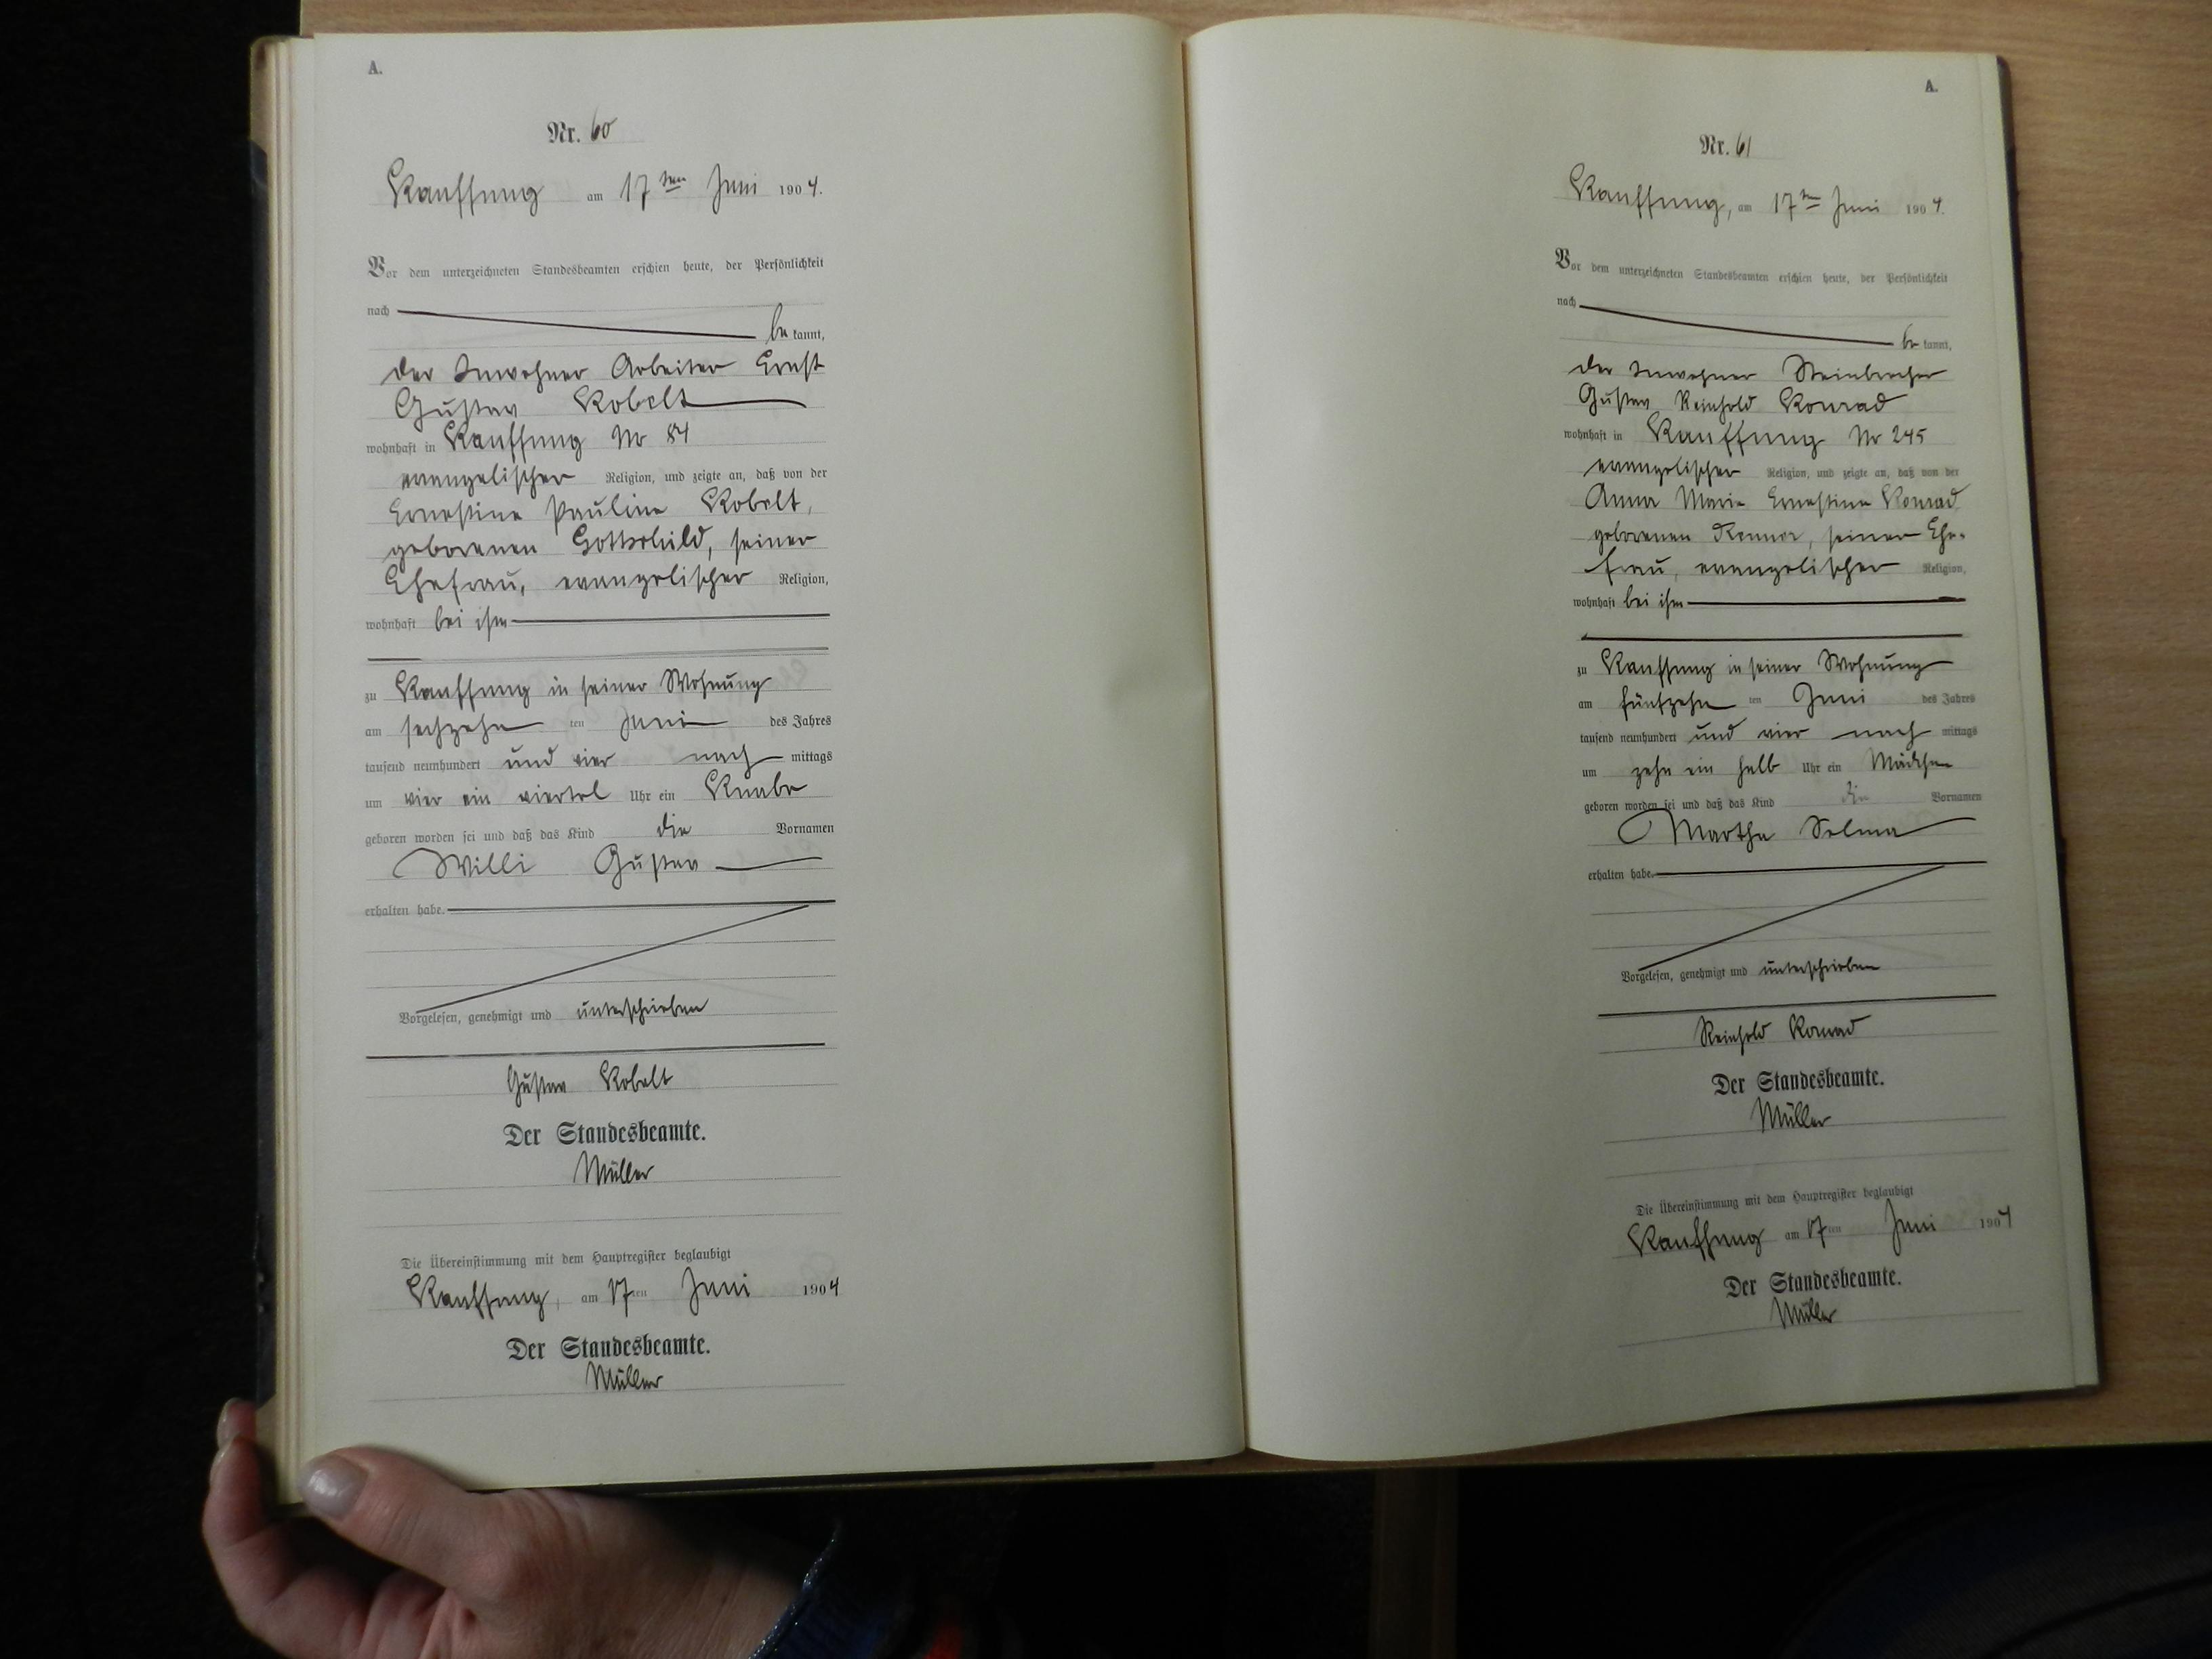 A.
Nr. 60
Kauffung am 17ten Juni 1904.
Vor dem unterzeichneten Standesbeamten erschien heute, der Persönlichkeit
nach
be kannt,
der Inwohner Arbeiter Ernst
Gustav Kobelt
wohnhaft in Kauffung Nr 84
evangelischer Religion, und zeigte an, daß von der
Ernestine Pauline Kobelt,
geborenen Gottschild, seiner
Ehefrau, evangelischer Religion,
wohnhaft bei ihm
zu Kauffung in seiner Wohnung
am sechzehn ten Juni des Jahres
tausend neunhundert und vier nach mittags
um vier ein viertel Uhr ein Knabe
geboren worden sei und daß das Kind die Vornamen
Willi Gustav
erhalten habe.
Vorgelesen, genehmigt und unterschrieben
Gustav Kobelt
Der Standesbeamte.
Müller
Die Übereinstimmung mit dem Hauptregister beglaubigt
Kauffung, am 17ten Juni 1904
Der Standesbeamte.
Müller
A.
Nr. 61
Kauffung, am 17ten Juni 1904.
Vor dem unterzeichneten Standesbeamten erschien heute, der Persönlichkeit
nach
be kannt,
der Inwohner Steinbrecher
Gustav Reinhold Konrad
wohnhaft in Kauffung Nr 245
evangelischer Religion, und zeigte an, daß von der
Anna Marie Ernestine Konrad
geborenen seiner Ehe-
frau, evangelischer Religion,
wohnhaft bei ihm
zu Kauffung in seiner Wohnung
am fünfzehn ten Juni des Jahres
tausend neunhundert und vier nach mittags
um zehn ein halb Uhr ein Mädchen
geboren worden sei und daß das Kind die Vornamen
Martha Selma
erhalten habe.
Vorgelesen, genehmigt und unterschrieben
Reinhold Konrad
Der Standesbeamte.
Müller
Die Übereinstimmung mit dem Hauptregister beglaubigt
Kauffung am 17ten Juni 1904
Der Standesbeamte.
Müller